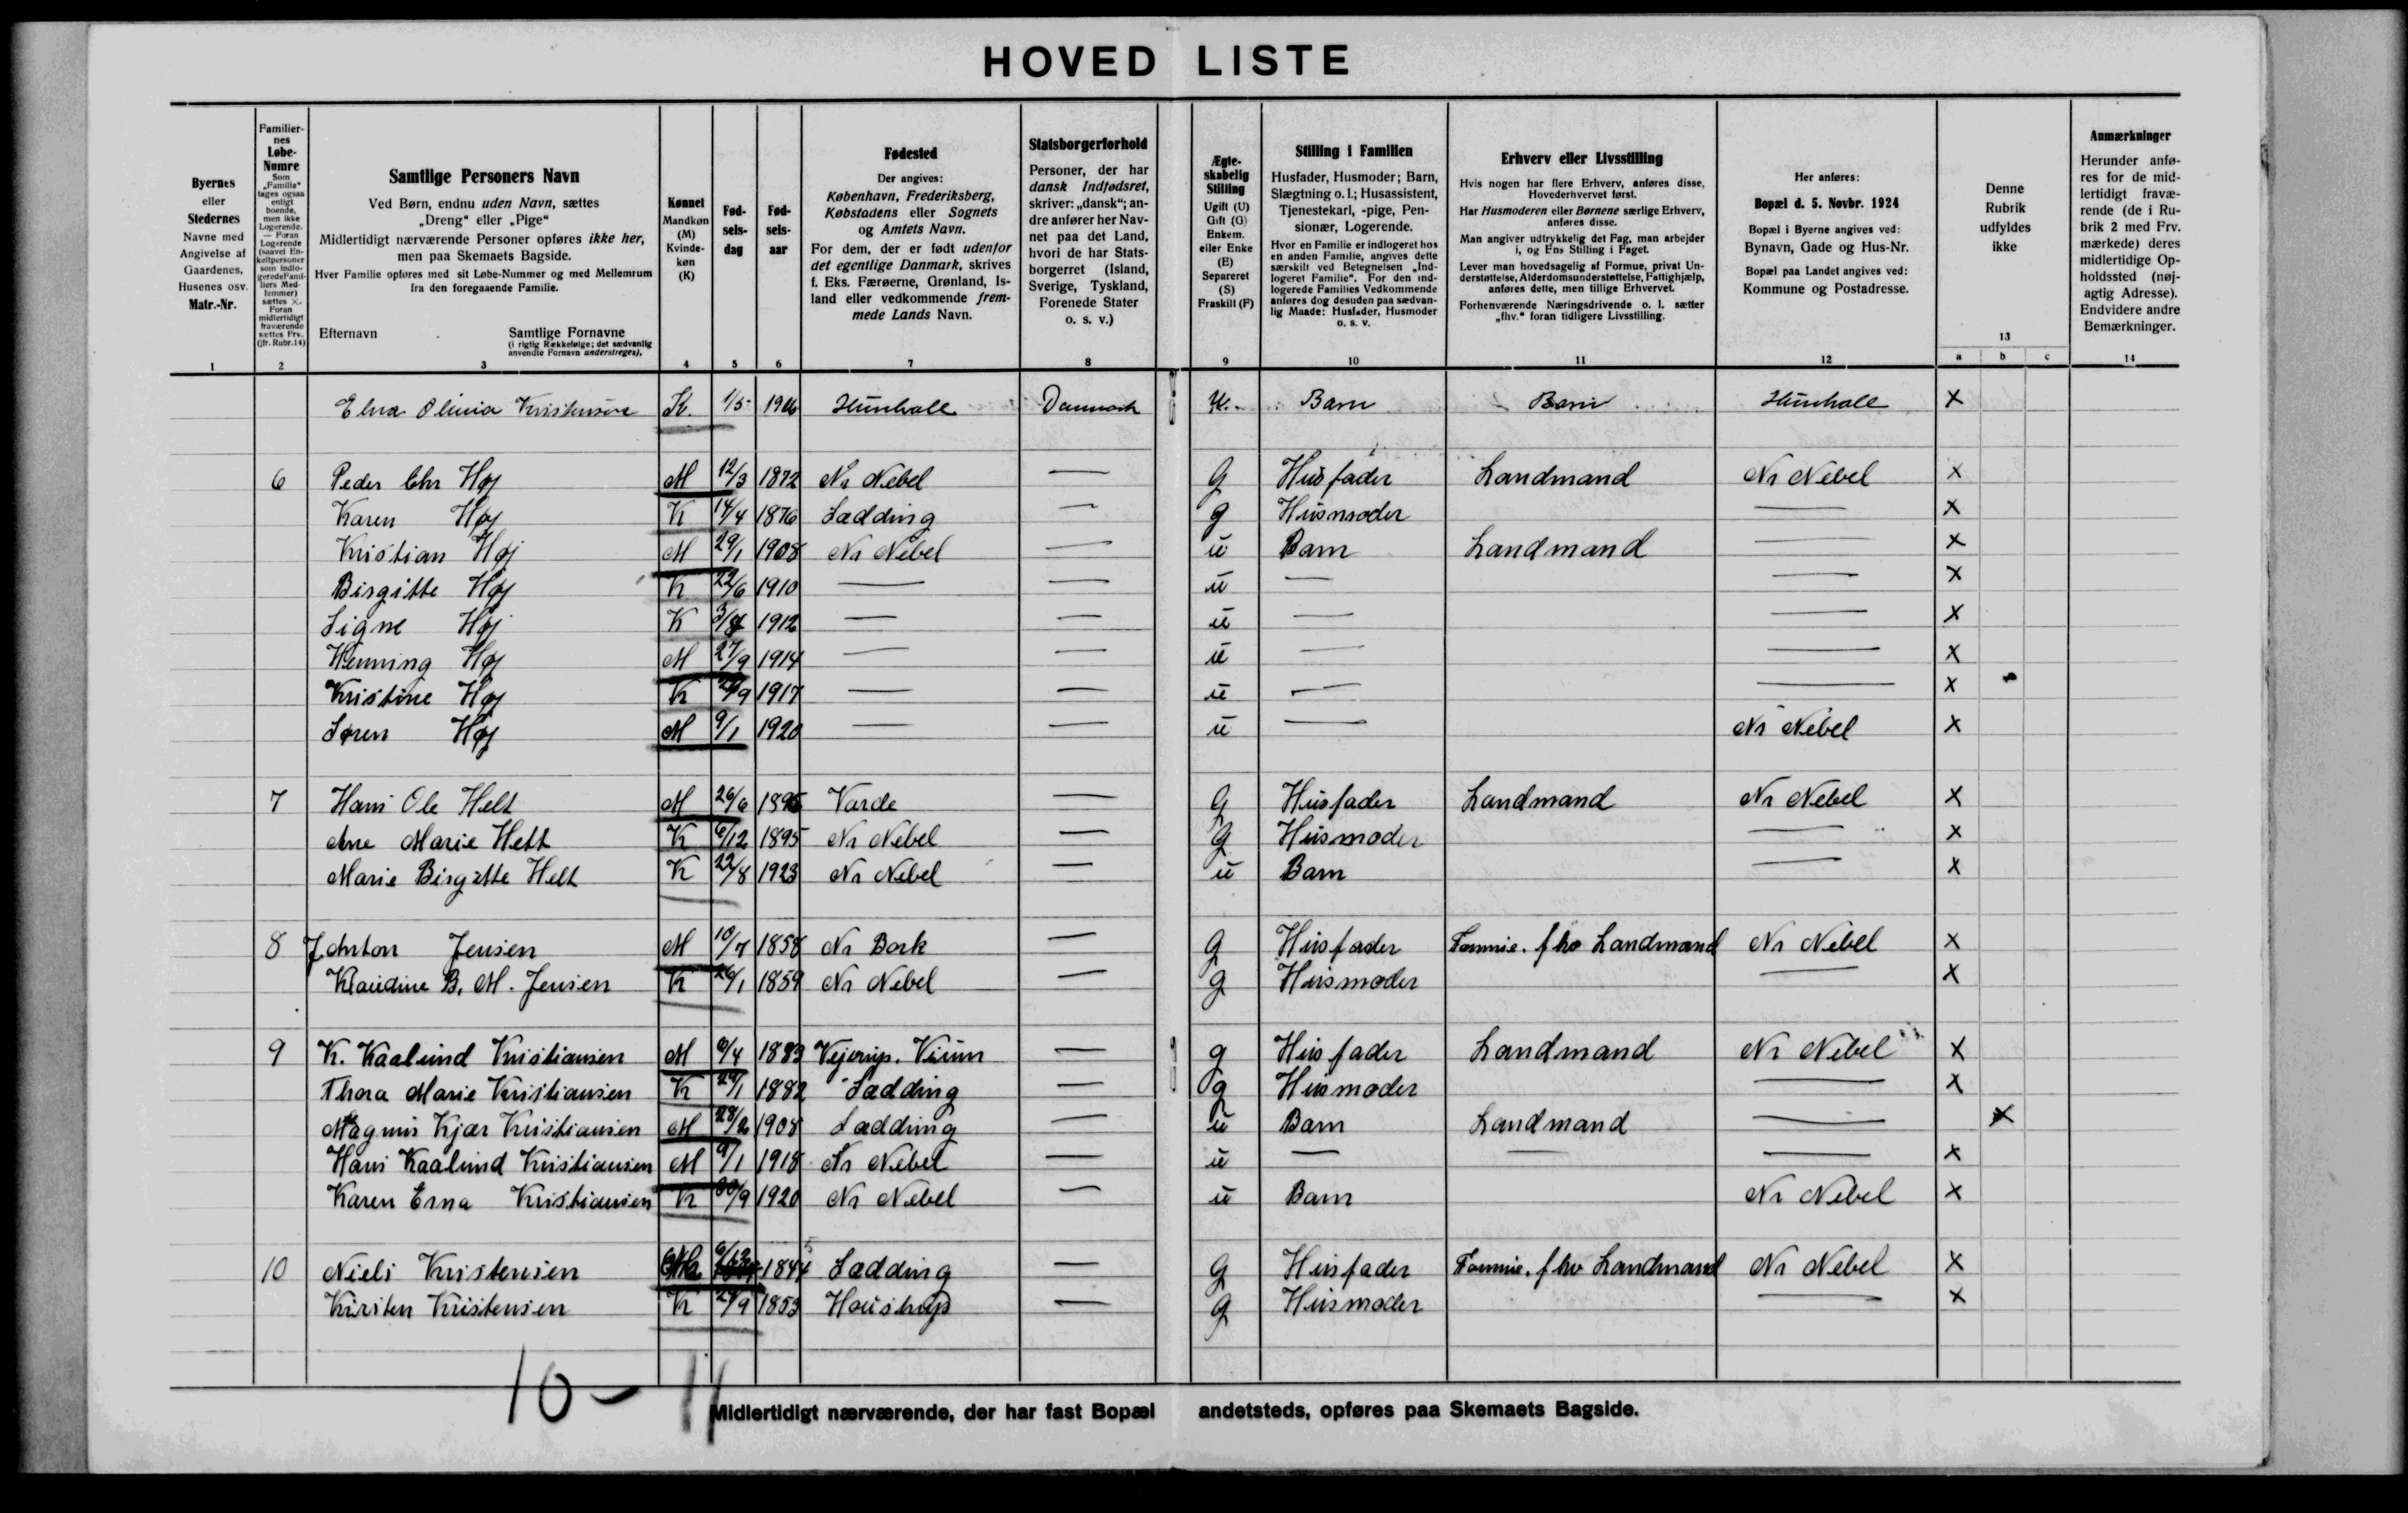 HOVED LISTE
Byernes
eller
Stedernes
Navne med
Angivelse af
Gaardenes,
Husenes osv.
Matr.-Nr.
1
Familier-
nes
Løbe-
Numre
Som
„Familie“
tages ogsaa
enligt
boende,
men ikke
Logerende.
— Foran
Logerende
(saavel En-
keltpersoner
som indlo-
geredeFami-
liers Med-
lemmer)
sættes ×.
Foran
midlertidigt
fraværende
sættes Frv.
(jfr. Rubr.14)
2
Samtlige Personers Navn
Ved Børn, endnu uden Navn, sættes
„Dreng“ eller „Pige“
Midlertidigt nærværende Personer opføres ikke her,
men paa Skemaets Bagside.
Hver Familie opføres med sit Løbe-Nummer og med Mellemrum
fra den foregaaende Familie.
Efternavn Samtlige Fornavne
(i rigtig Rækkefølge; det sædvanlig
anvendte Fornavn understreges),
3
Kønnet
Mandkøn
(M)
Kvinde-
køn
(K)
4
Fød-
sels-
dag
5
Fød-
sels-
aar
6
Fødested
Der angives:
København, Frederiksberg,
Købstadens eller Sognets
og Amtets Navn.
For dem, der er født udenfor
det egentlige Danmark, skrives
f. Eks. Færøerne, Grønland, Is-
land eller vedkommende frem-
mede Lands Navn.
7
Statsborgerforhold
Personer, der har
dansk Indfødsret,
skriver: „dansk“; an-
dre anfører her Nav-
net paa det Land,
hvori de har Stats-
borgerret (Island,
Sverige, Tyskland,
Forenede Stater
o. s. v.)
8
Ægte-
skabelig
Stilling
Ugift (U)
Gift (G)
Enkem.
eller Enke
(E)
Separeret
(S)
Fraskilt (F)
9
Stilling i Familien
Husfader, Husmoder; Barn,
Slægtning o. l.; Husassistent,
Tjenestekarl, -pige, Pen-
sionær, Logerende.
Hvor en Familie er indlogeret hos
en anden Familie, angives dette
særskilt ved Betegnelsen „Ind-
logeret Familie“. For den ind-
logerede Families Vedkommende
anføres dog desuden paa sædvan-
lig Maade: Husfader, Husmoder
o. s. v.
10
Erhverv eller Livsstilling
Hvis nogen har flere Erhverv, anføres disse,
Hovederhvervet først.
Har Husmoderen eller Børnene særlige Erhverv,
anføres disse.
Man angiver udtrykkelig det Fag, man arbejder
i, og Ens Stilling i Faget.
Lever man hovedsagelig af Formue, privat Un-
derstøttelse, Alderdomsunderstøttelse, Fattighjælp,
anføres dette, men tillige Erhvervet.
Forhenværende Næringsdrivende o. l. sætter
„fhv.“ foran tidligere Livsstilling.
11
Her anføres:
Bopæl d. 5. Novbr. 1924
Bopæl i Byerne angives ved:
Bynavn, Gade og Hus-Nr.
Bopæl paa Landet angives ved:
Kommune og Postadresse.
12
Denne
Rubrik
udfyldes
ikke
13
a b c
Anmærkninger
Herunder anfø-
res for de mid-
lertidigt fravæ-
rende (de i Ru-
brik 2 med Frv.
mærkede) deres
midlertidige Op-
holdssted (nøj-
agtig Adresse).
Endvidere andre
Bemærkninger.
14
Elna Olivia Kristensen K. 1/5 Danmark U. Barn Barn ×
6 Peder Chr Høj M 12/3 1872 Nr Nebel — G Husfader Landmand Nr Nebel ×
Karen Høj K 14/4 1876 Lædding — g Husmoder — ×
Kristian Høj M 29/1 1908 Nr Nebel — u Barn Landmand — ×
Birgitte Høj K 22/6 1910 — — u — — ×
Signe Høj K 1912 — — u — — ×
Henning Høj M 27/9 1914 — — u — — ×
Kristine Høj K 1917 — — u — — ×
Søren Høj M 9/1 1920 — — u — Nr Nebel ×
7 Hans Ole Helt M 26/6 Varde — G Husfader Landmand Nr Nebel ×
Ane Marie Helt K 6/12 1895 Nr Nebel — G Husmoder — ×
Marie Birgitte Helt K 22/8 1923 Nr Nebel — u Barn — ×
8 J. Anton Jensen M 10/7 1858 Nr Bork — G Husfader fhv Landmand Nr Nebel ×
Klaudine B. M. Jensen K 26/1 1859 Nr Nebel — g Husmoder — ×
9 K. Kaalund Kristiansen M 6/4 1883 Vejerup. Vium — g Husfader Landmand Nr Nebel ×
Thora Marie Kristiansen K 29/1 1882 Lædding — g Husmoder — ×
Magnus Kjær Kristiansen M 28/2 1908 Lædding — u Barn Landmand — ×
Hans Kaalund Kristiansen M 9/1 1918 Nr Nebel — u — — — ×
Karen Erna Kristiansen K 30/9 1920 Nr Nebel — u Barn Nr Nebel ×
10 Niels Kristensen 6/12 1844 Lædding — G Husfader fhv Landmand Nr Nebel ×
Kirsten Kristensen K 1853 Houstrup — G Husmoder — ×
10 - 11
Midlertidigt nærværende, der har fast Bopæl andetsteds, opføres paa Skemaets Bagside.